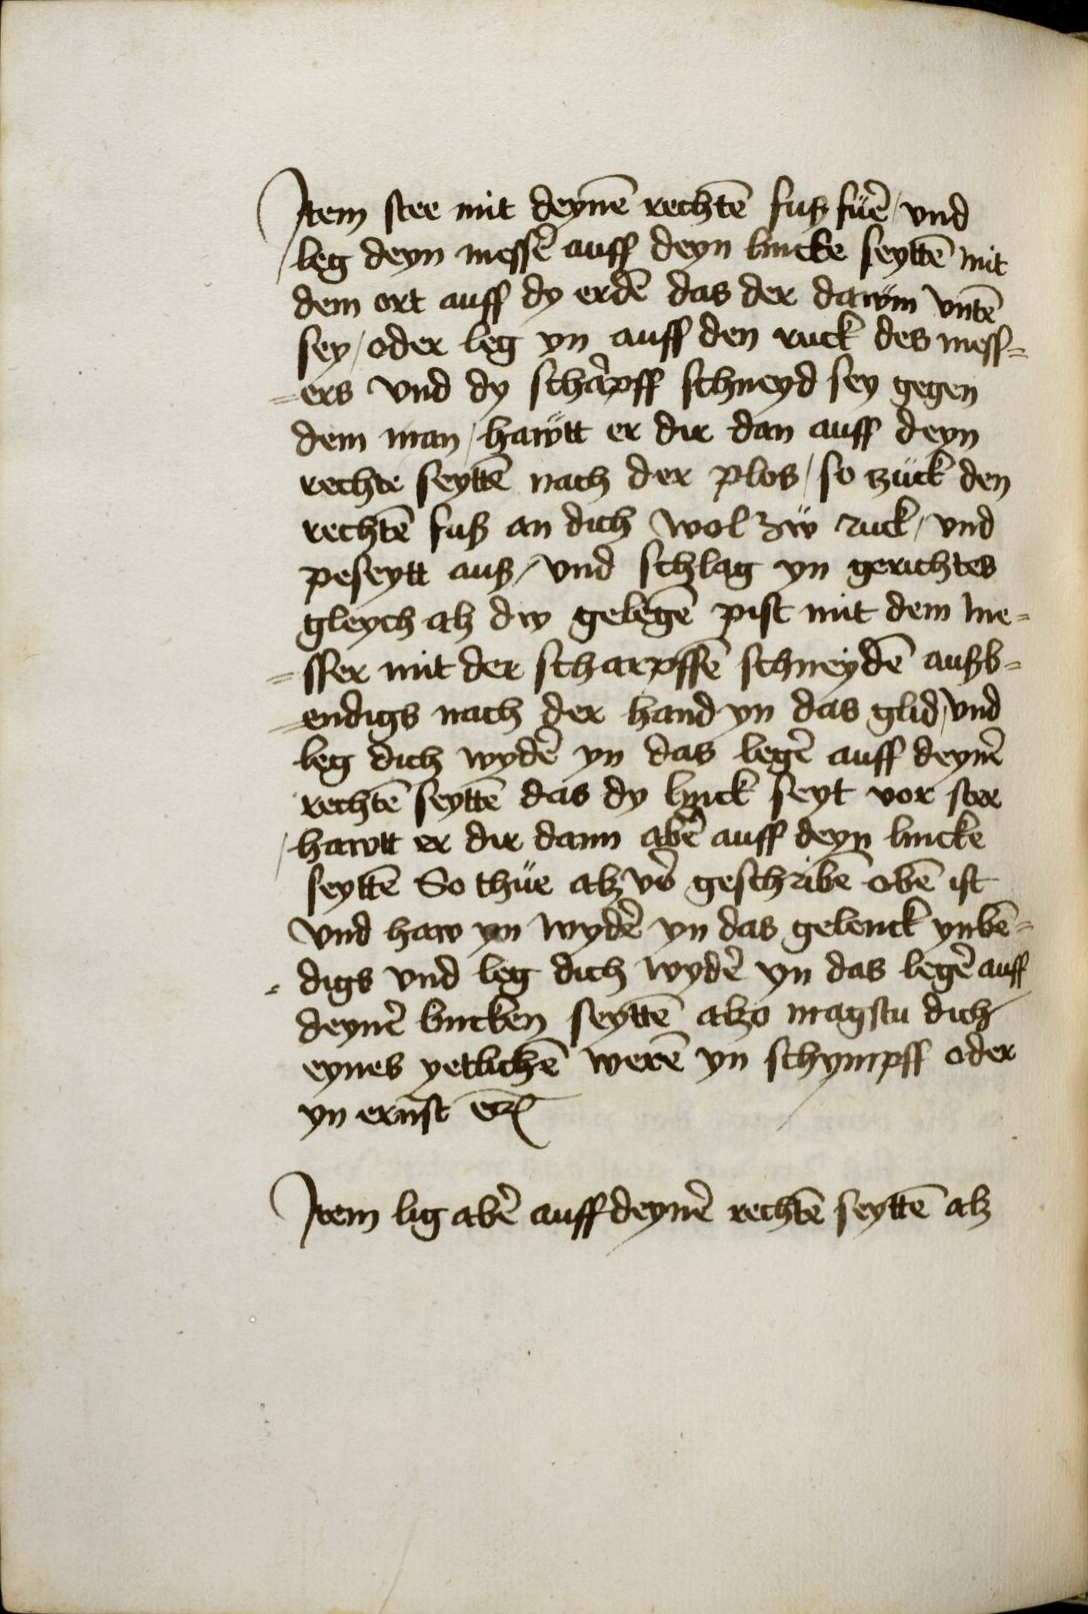 Item stee mit deynē rechtē fuß fuͤē / vnd
leg deyn messē auff deyn lincke seyttē mit
dem ort auff dy erdē das der daẅm vntē
sey / oder leg yn auff den ruck des mess=
=ers vnd dy scharpff schneyd sey gegen
dem man / haẅtt er dir dan auff deyn
rechte seyttē nach der plos / so zück den
rechtē fuß an dich wol zẅ ruck / vnd
peseytt auß / vnd schlag yn gerichtes
gleych alz dw gelegē pist mit dem me=
=sser mit der scharpffē schneydē außb=
=endigs nach der hand yn das glid / vnd
leg dich wydē yn das legē auff deynē
rechtē seyttē das dy linck seyt vor stee
/ hawtt er dir dann abē auff deyn lincke
seyttē So thüe alz vō geschribē obē ist
vnd haw yn wydē yn das gelenck ynbē=
=digs vnd leg dich wydē yn das legē auff
deynē lincken seyttē alzo magstu dich
eynes yetlichē werē yn schympff oder
yn ernst

Item lig abē auff deynē rechtē seyttē alz